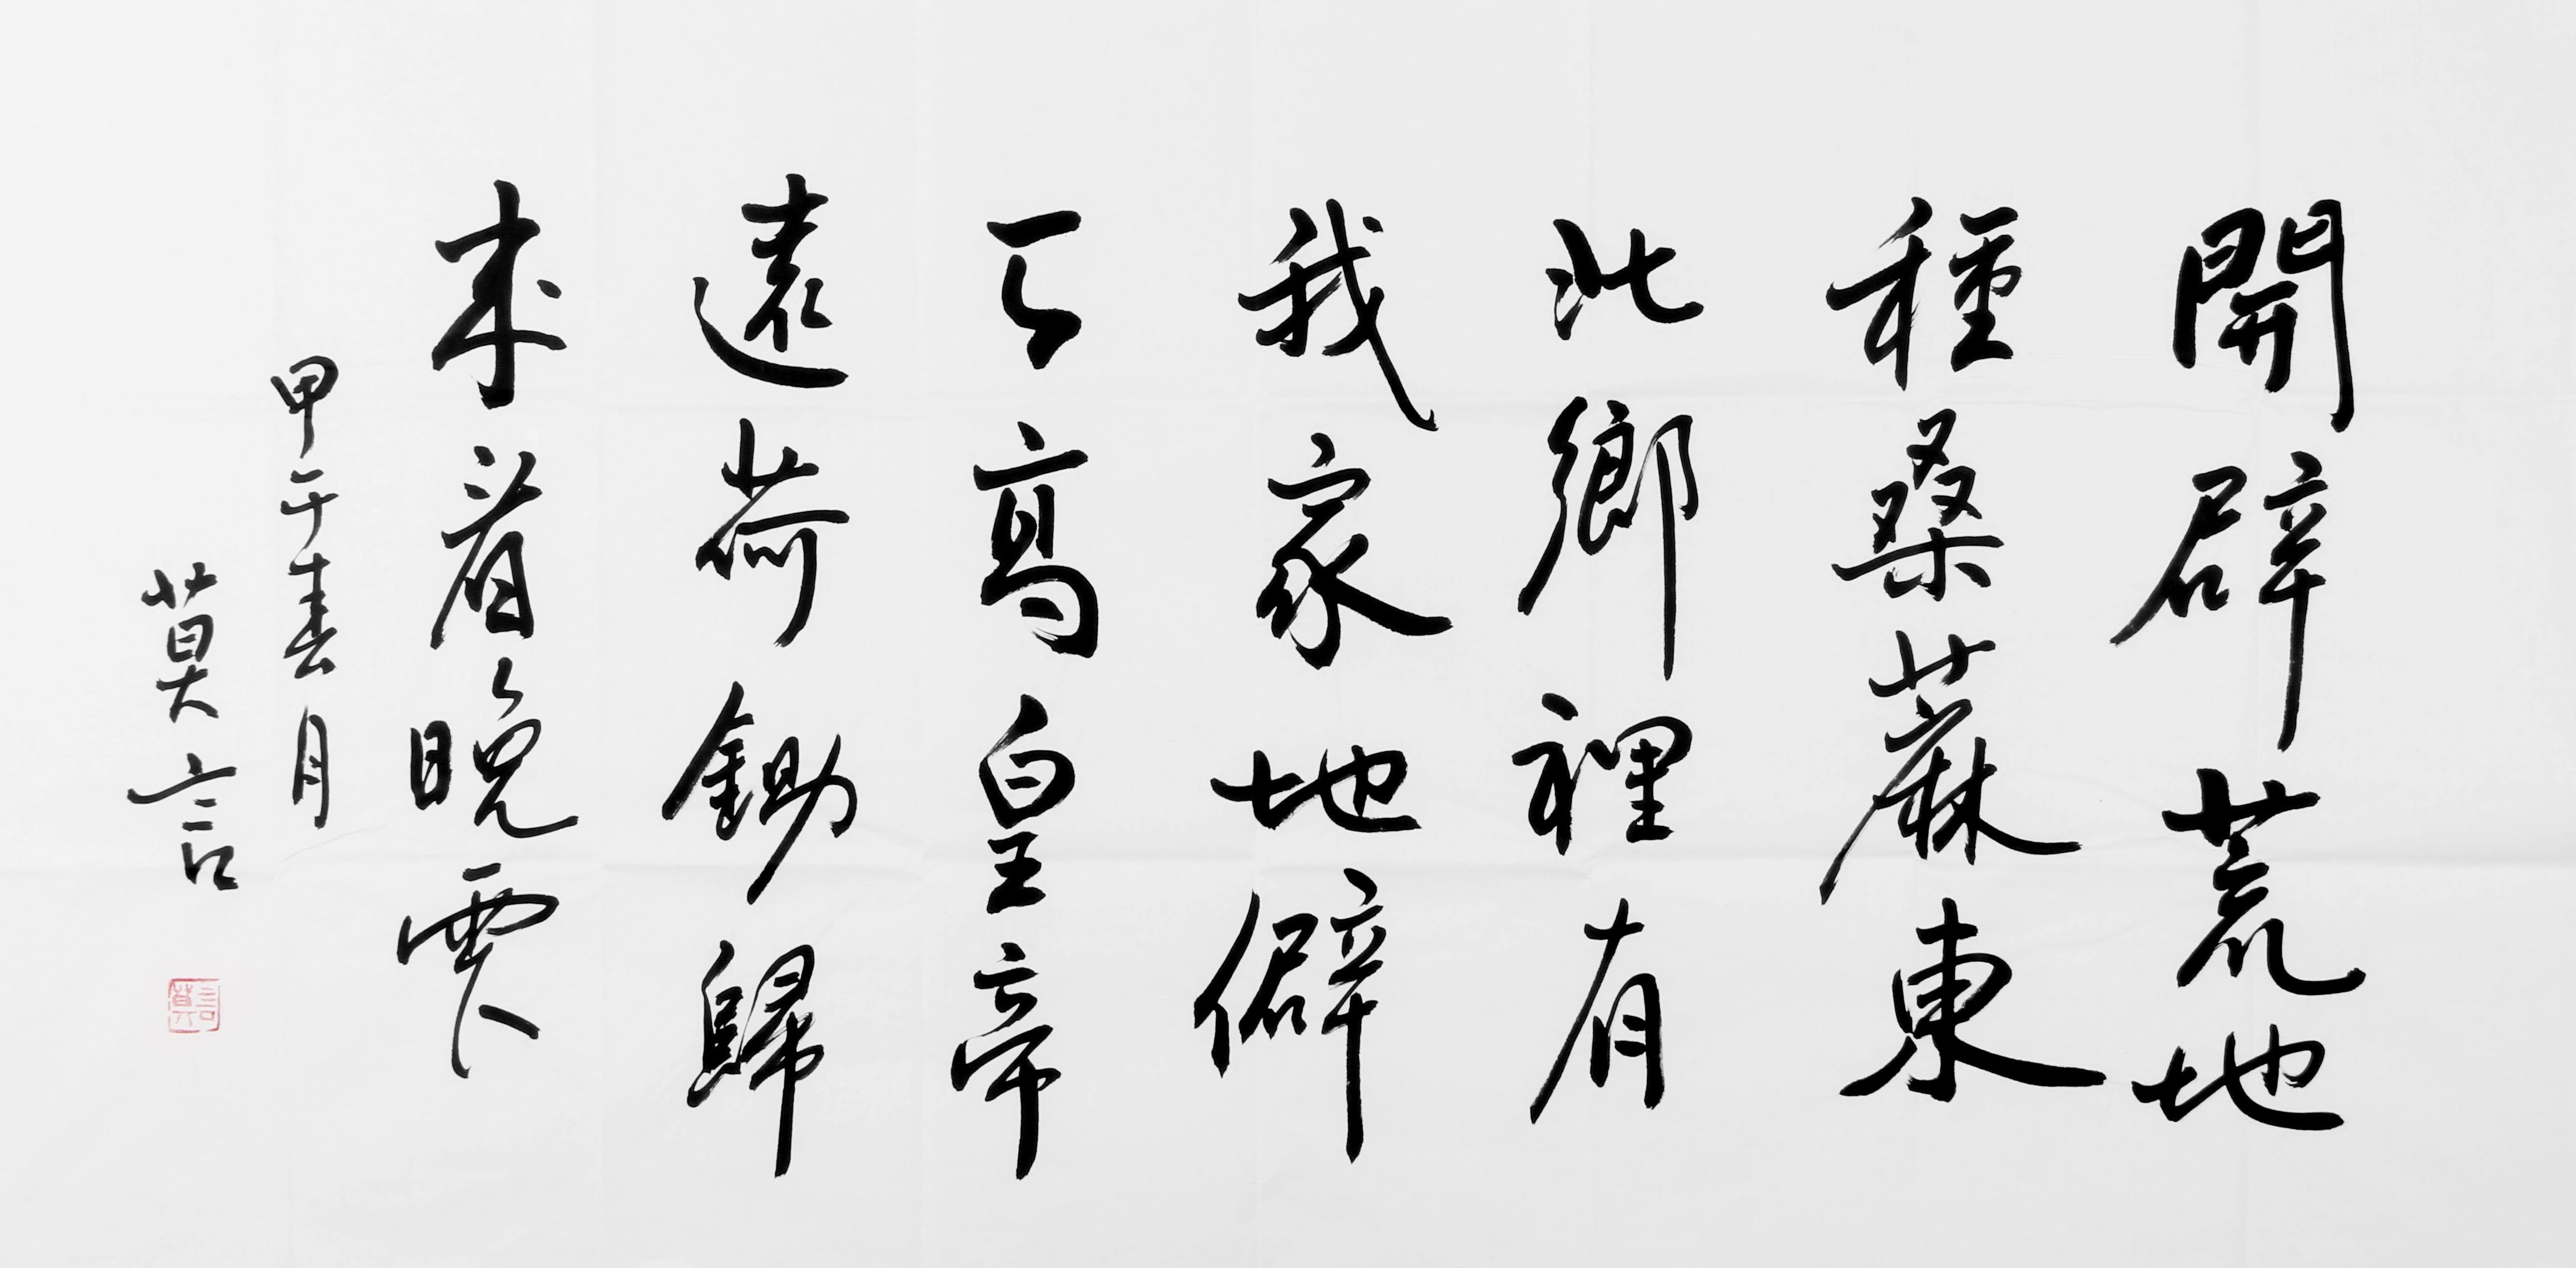 開辟荒地
種桑蔴東
北鄉裡有
我家地僻
天高皇帝
遠荷鋤歸
来看晚霞
甲午春月
莫言
莫言